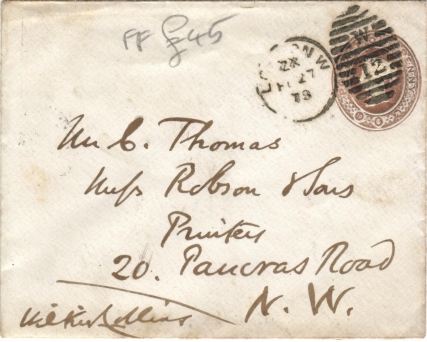 FF £45
LONDON N.W
ZX
W
12
Mr C. Thomas
Messrs Robson & Sons
Printers
20. Pancras Road
N. W.
Wilkie Collins